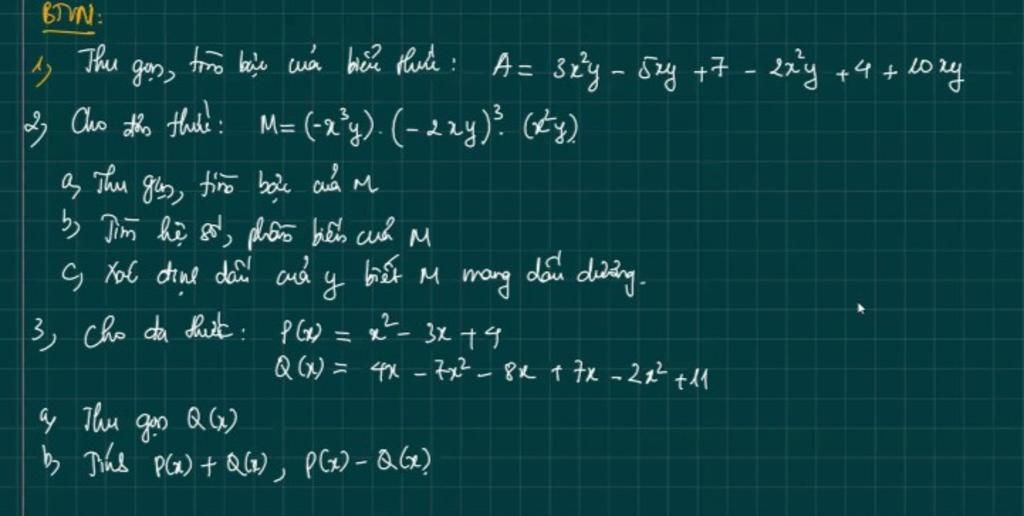 BTVN:
1, Thu gọn, tìm bậc của biểu thức : A = 3x²y - 5xy + 7 - 2x²y + 4 + 10xy
2, Cho đơn thức: M = (-x³y) . (-2xy)³. (x²y).
a, Thu gọn, tìm bậc của M
b, Tìm hệ số, phần biến của M
c, Xác định dấu của y biết M mang dấu dương.
3, Cho đa thức : P(x) = x² - 3x + 4
Q(x) = 4x - 7x² - 8x + 7x - 2x² + 11
a, Thu gọn Q(x)
b, Tính P(x) + Q(x), P(x) - Q(x).